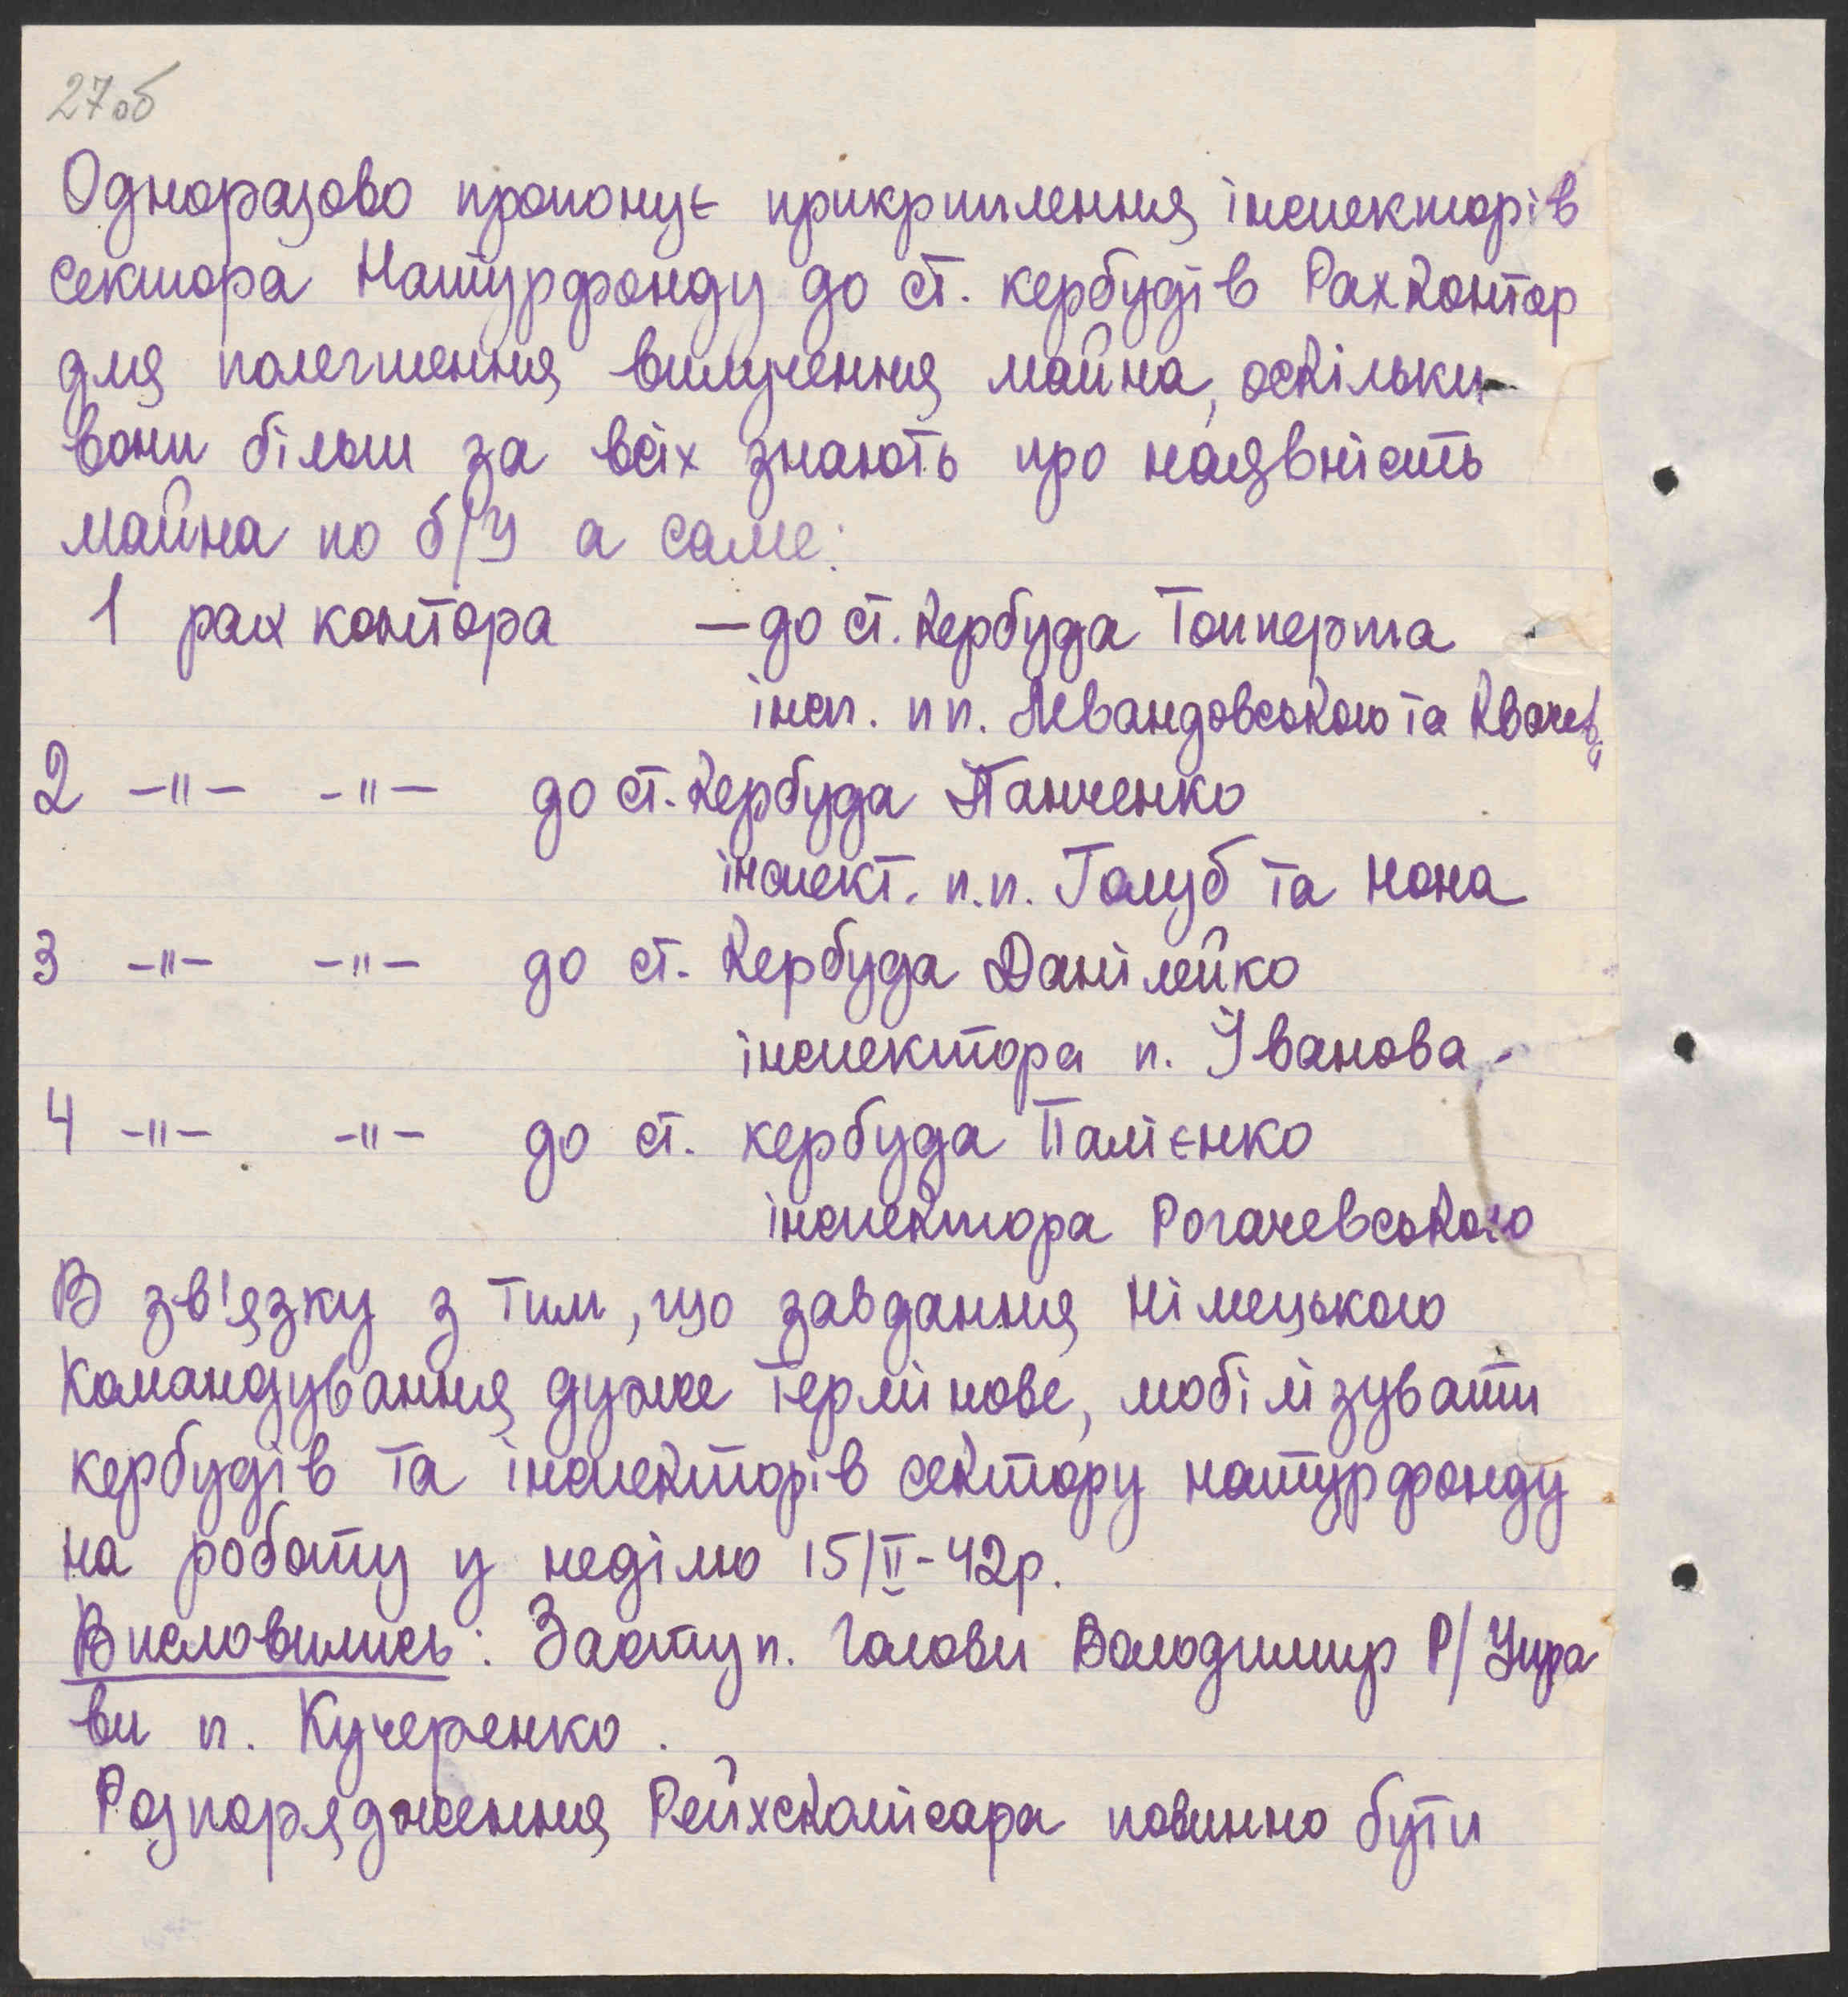 27об
Одноразово пропонує прикрiплення інспекторів
сектора Натурфонду до ст. кербудів Рахконтор
для полегшення вилучення майна, оскільки
вони більш за всіх знають про наявність
майна по б/у а саме:
1 рах контора — до ст. кербуда Топперта
інсп. п п. Левандовського та
2 -"- -"- до ст. кербуда Панченко
інспект. п.п. Голуб та Нона
3 -"- -"- до ст. кербуда Данілейко
інспектора п. Іванова
4 -"- -"- до ст. кербуда Палієнко
інспектора Рогачевського
В зв'язку з тим, що завдання Німецького
Командування дуже термінове, мобілізувати
кербудів та інспекторів сектору натурфонду
на роботу у неділю 15/II-42р.
Висловились: Заступ. Голови Володимир Р/Упра
ви п. Кучеренко.
Розпорядження Рейхскомісара повинно бути